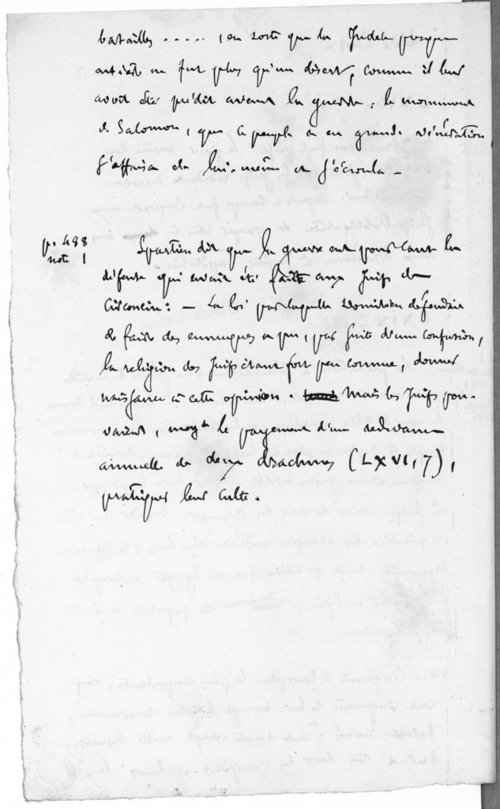 batailles ....., en sorte que la Judée presque
entière ne fut plus qu'un désert, comme il leur
avait été prédit avant la guerre : le monument
de Salomon, que ce peuple a en grande vénération
s'affaissa de lui-même et s'écroula -
p. 488
note 1
Spartien dit que la guerre eut pour cause la
défense qui avait été faite aux Juifs de
circoncire : - La loi par laquelle Domitien défendait
de faire des eunuques a pu, par suite d'une confusion,
la religion des Juifs étant fort peu connue, donner
naissance à cette opinion. Mais les Juifs pou-
vaient, moyt le payement d'une redevance
annuelle de deux drachmes (LXVI, 7),
pratiquer leur culte.